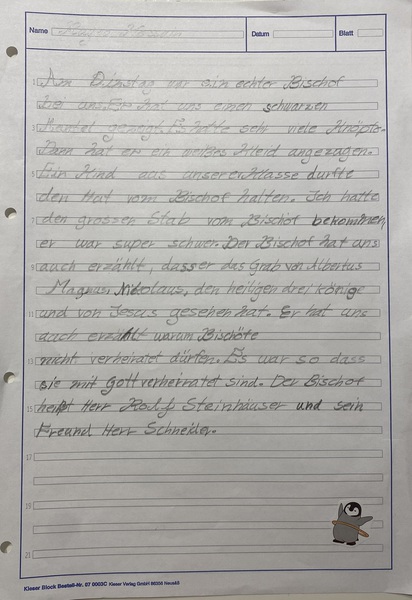 Name
Datum
Blatt
Am Dinstag war ein echter Bischof
bei uns. Er hat uns einen schwarzen
Mantel gezeigt. Es hatte sehr viele Knöpfe.
Dann hat er ein weißes Kleid angezogen.
Ein Kind aus unserer Klasse durfte
den Hut vom Bischof halten. Ich hatte
den grossen Stab vom Bischof bekommen,
er war super schwer. Der Bischof hat uns
auch erzählt, dass er das Grab von Albertus
Magnus, Nikolaus, den heiligen drei könige
und von Jesus gesehen hat. Er hat uns
auch erzählt warum Bischöfe
nicht verheiratet dürfen. Es war so dass
sie mit Gott verherratet sind. Der Bischof
heißt Herr Rolf Steinhäuser und sein
Freund Herr Schneider.
1
3
5
7
9
11
13
15
17
19
21
Kieser Block Bestell-Nr. 07 0003C Kieser Verlag GmbH 86356 Neusäß